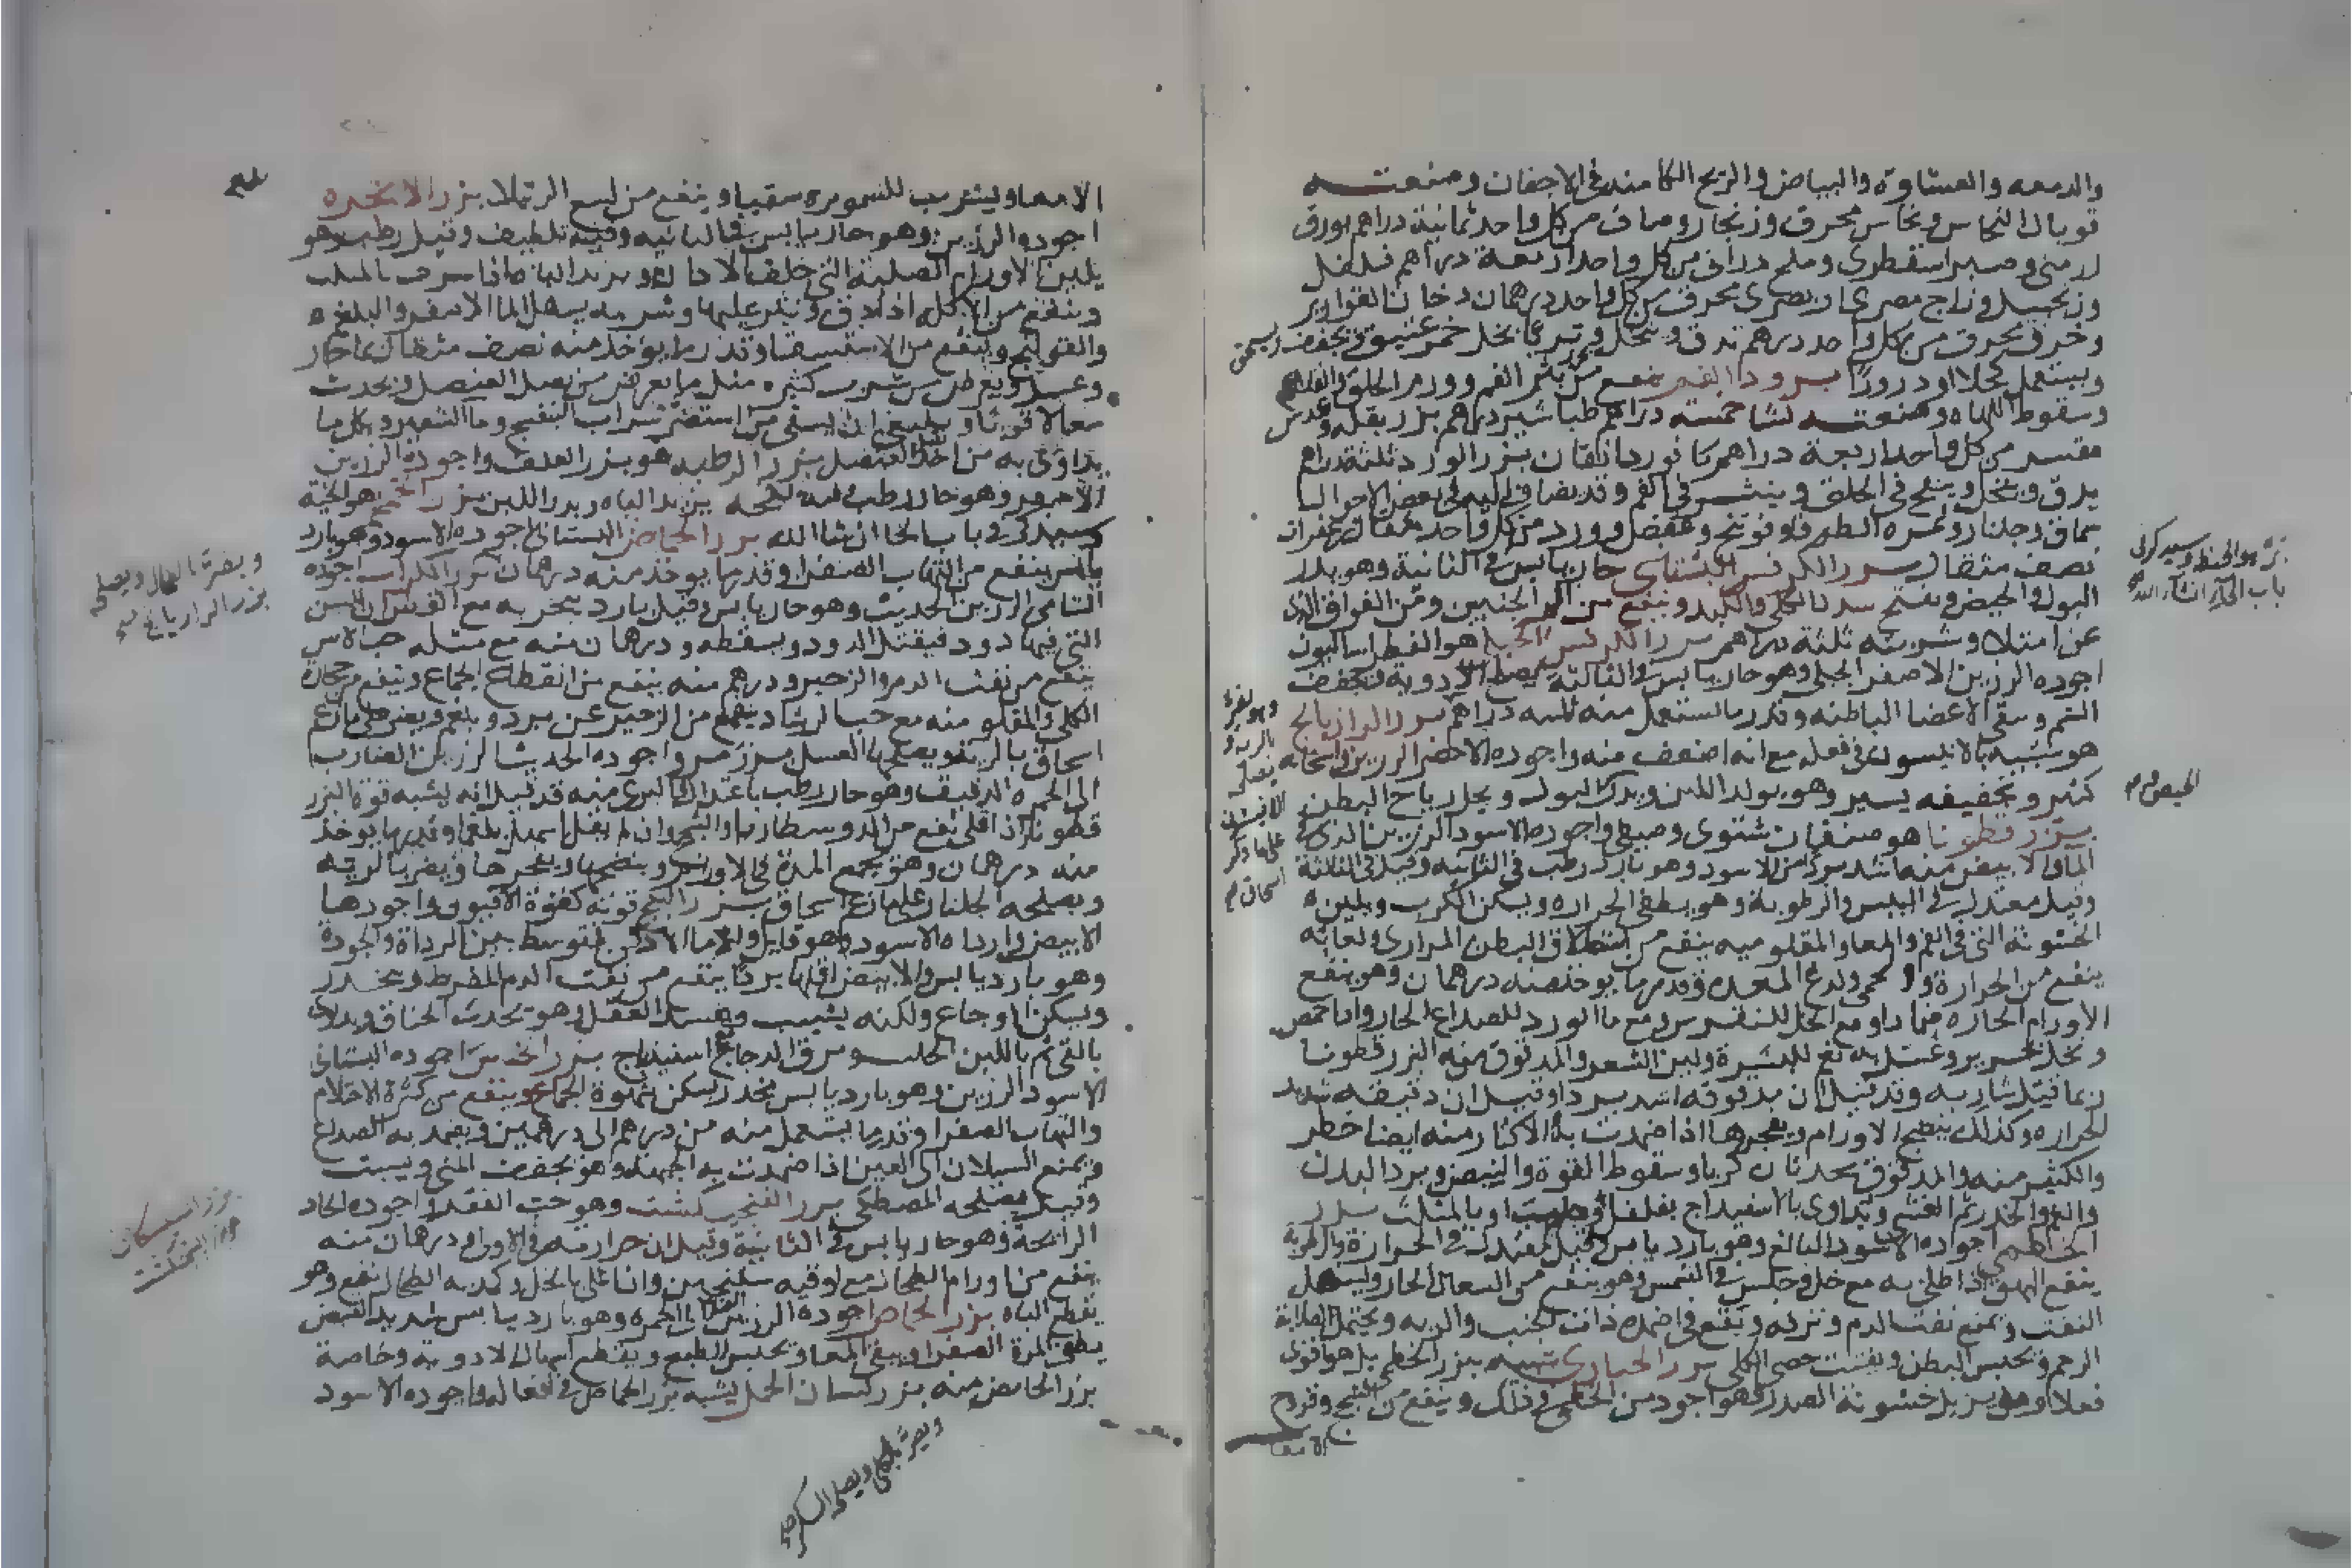 والدمعه والغشاوة والبياض والريح الكامنه في الاجفان وصنعته
توبال النحاس ونحاس محرق وزنجار وماف من كل واحد ثمانية دراهم بورق
ارمني وصبر اسقطري وملح دراني من كل واحد اربعة دراهم فلفل
وزنجبيل وزاج مصري او بصري محرق من كل واحد درهمان دخان القوارير
وخزف محرق من كل واحد درهم تدق وتنخل وتربا بخل خمر عتيق وتجفف وتسحق
ويستعمل كحلا او درورا برود الفم ينفع من بثر الفم وورم الحلق والقلاع
وسقوط اللهاه وصنعته نشا خمسة دراهم طباشير درهم بزر بقله وعدس
مقشر من كل واحد اربعة دراهم كافور دانقان بزر الورد ثلثة دراهم
يدق وينخل وينفخ في الحلق وينثر في الفم وقد يضاف اليه في بعض الاحوال
سماق وجلنار وثمره الطرفا وفوتنج وعفص وورد من كل واحد مثقال زعفران
نصف مثقال بزر الكرفس البستاني حار يابس في الثانية وهو يدر
البول والحيض ويفتح سدد الكلي والكبد وينفع من الم الجنبين ومن الفواق الذي
عن امتلا وشربته ثلثة دراهم بزر الكرفس الجبلي هو الفطراساليون
اجوده الرزين الاصفر الجبلي وهو حار يابس في الثالثة الادوية تجفف
السم وسقي الاعضا الباطنه وقدر ما يستعمل منه ثلثه دراهم بزر الرازيانج
هو شبيه بالانيسون في فعله مع انه اضعف منه واجوده الاخضر الرزين واسخانه
كثير وتجفيفه يسير وهو يولد اللبن ويدر البول ويحلل رياح البطن
بزر قطونا هو صنفان شتوي وصيفي واجوده الاسود الرزين الذي في
الما والابيض منه اشد بردا من الاسود وهو بارد رطب في الثانيه وقيل في الثالثة
وقيل معتدل في اليبس والرطوبة وهو يطفي الحراره ويسكن الكرب ويلين
الخشونة التي في الفم والمعا والمقلو منه ينفع من استطلاق البطن المراري ولعابه
ينفع من الحرارة والحمي ولدغ المعده وقدر ما يوخذ منه درهمان وهو ينفع
الاورام الحاره ضمادا ومع الخل للنقرس ومع ما الورد للصداع الحار واذا حمص
للبشرة ولين الشعر والمدقوق منه البزر قطونا
ربما قتل شاربه وقد قيل ان مدقوقه اشد بردا وقيل ان دقيقه شديد
الحراره وكذلك ينضج الاورام ويفجرها اذا ضمدت به والاكثار منه ايضا خطر
والكثير منه والمدقوق يحدثان كربا وسقوط القوة والنبض وبرد البدن
والغم والخدر ثم الغشي ويداوي بالاسفيداج بفلفل او بالمثلث بزر
الخطمي اجوده الاسود البالغ وهو بارد يابس وقيل معتدل في الحرارة والرطوبة
ينفع البهق اذا طلي به مع خل وجلس في الشمس وهو ينفع من السعال الحار ويسهل
النفث ويمنع نفث الدم ونزفه وينفع في اضمدة ذات الجنب والريه ويحلل صلابة
الرحم ويحبس البطن ويفتت حصي الكلي بزر الخبازي شبيه ببزر الخطمي بل هو اقوي
فعلا وهو يزيل خشونة الصدر فهو اجود من الخطمي في ذلك وينفع من السحج وقروح
الامعا
بزره هو الحنظ وسيدكر في
باب الحا ان شا الله
الحيض
وهو يضر
بالريه و
يصلحه
الافسنتين
علي ما ذكر
اسحاق
الامعا ويشرب للسموم سقيا وينفع من لسع الرتيلا بزر الانجره
اجوده الرزين وهو حار يابس في الثانيه وفيه تلطيف وقيل رطب وهو
يلين الاورام الصلبة التي خلف الاذان ويزيد الباه اذا شرب بالمثلث
وينفع من الاكله اذا دق ونثر عليها وشربه يسهل الما الاصفر والبلغم
والقولنج وينفع من الاستسقا وقدر ما يوخذ منه نصف مثقال بما حار
وعسل ويعرض من شرب كثيره مثل ما يعرض من بصل العنصل ويحدث
سعالا قويا وينبغي ان يسقي من استضر شراب البنفسج وما الشعير وبكل ما
يداوي به من اخذ العنصل بزر الرطبه هو بزر العلف واجوده الرزين
الاحمر وهو حار رطب يزيد الباه ويدر اللبن بزر الخمخم هو الخبة
وسيذكر في باب الخا ان شا الله بزر الحماض البستاني اجوده الاسود وهو بارد
يابس ينفع من التهاب الصفرا وقدر ما يوخذ منه درهمان بزر الكراث اجوده
الشامي الرزين الحديث وهو حار يابس وقيل بارد يتبخر به مع القطران السن
التي فيها دود فيقتل الدود ويسقطه ودرهمان منه مع مثله حب الاس
ينفع من نفث الدم والزحير ودرهم منه ينفع من انقطاع الجماع وينفع من حصاة
الكلي والمقلو منه مع حب الرشاد ينفع من الزحير عن برد وبلغم ويضر علي ما زعم
اسحاق بالريه ويصلحه العسل بزر مرو اجوده الحديث الرزين الضارب
الي الحمره الدقيق وهو حار رطب باعتدال المري منه قد قيل انه يشبه قوة البزر
قطونا اذا قلي نفع من الدوسنطاريا والسحج وان لم يقل اسهل بلغما وقدر ما يوخذ
منه درهمان وهو يجمع المدة في الاورام وينضجها ويفجرها ويضر بالريه
ويصلحه الجلنار علي ما زعم اسحاق بزر البنج قوته كقوة الافيون واجودها
الابيض وارداه الاسود وهو قاتل واما الادكن فمتوسط بين الرداة والجودة
وهو بارد يابس والابيض اقلها بردا ينفع من نفث الدم المفرط ويخدر
ويسكن الاوجاع ولكنه يسبت ويفسد العقل وهو يحدث الخناق ويداوي
بالقي ثم باللبن الحليب ومرق الدجاج اسفيداج بزر الخس اجوده البستاني
الاسود الرزين وهو بارد يابس مخدر يسكن شهوة الجماع وينفع من كثرة الاحتلام
والتهاب الصفرا وقدر ما يستعمل منه من درهم الي درهمين ويضمد به الصداع
ويمنع السيلان الي العين اذا ضمدت به الجبهة وهو يجفف المني ويسبت
وقيل يصلحه المصطكي بزر الفنجنكشت وهو حب الفقد واجوده الحاد
الرائحة وهو حار يابس في الثانية وقيل ان حرارته في الاولي درهمان منه
ينفع من اورام الطحال مع اوقيه سكنجبين واذا غلي بالخل وكمد به الطحال نفع وهو
يقطع الباه بزر الحماض اجوده الرزين الي الحمره وهو بارد يابس شديد القبض
يطفي المرة الصفرا ويقوي المعا ويحبس الطبع ويقطع اسهال الادوية وخاصة
بزر الحامض منه بزر لسان الحمل يشبه بزر الحماض في افعاله واجوده الاسود
ويضر بالطحال ويصلحه
بزر الرازيانج
بزر
بزر الفنجنكشت
ويضر بالكلي ويصلحه السكر